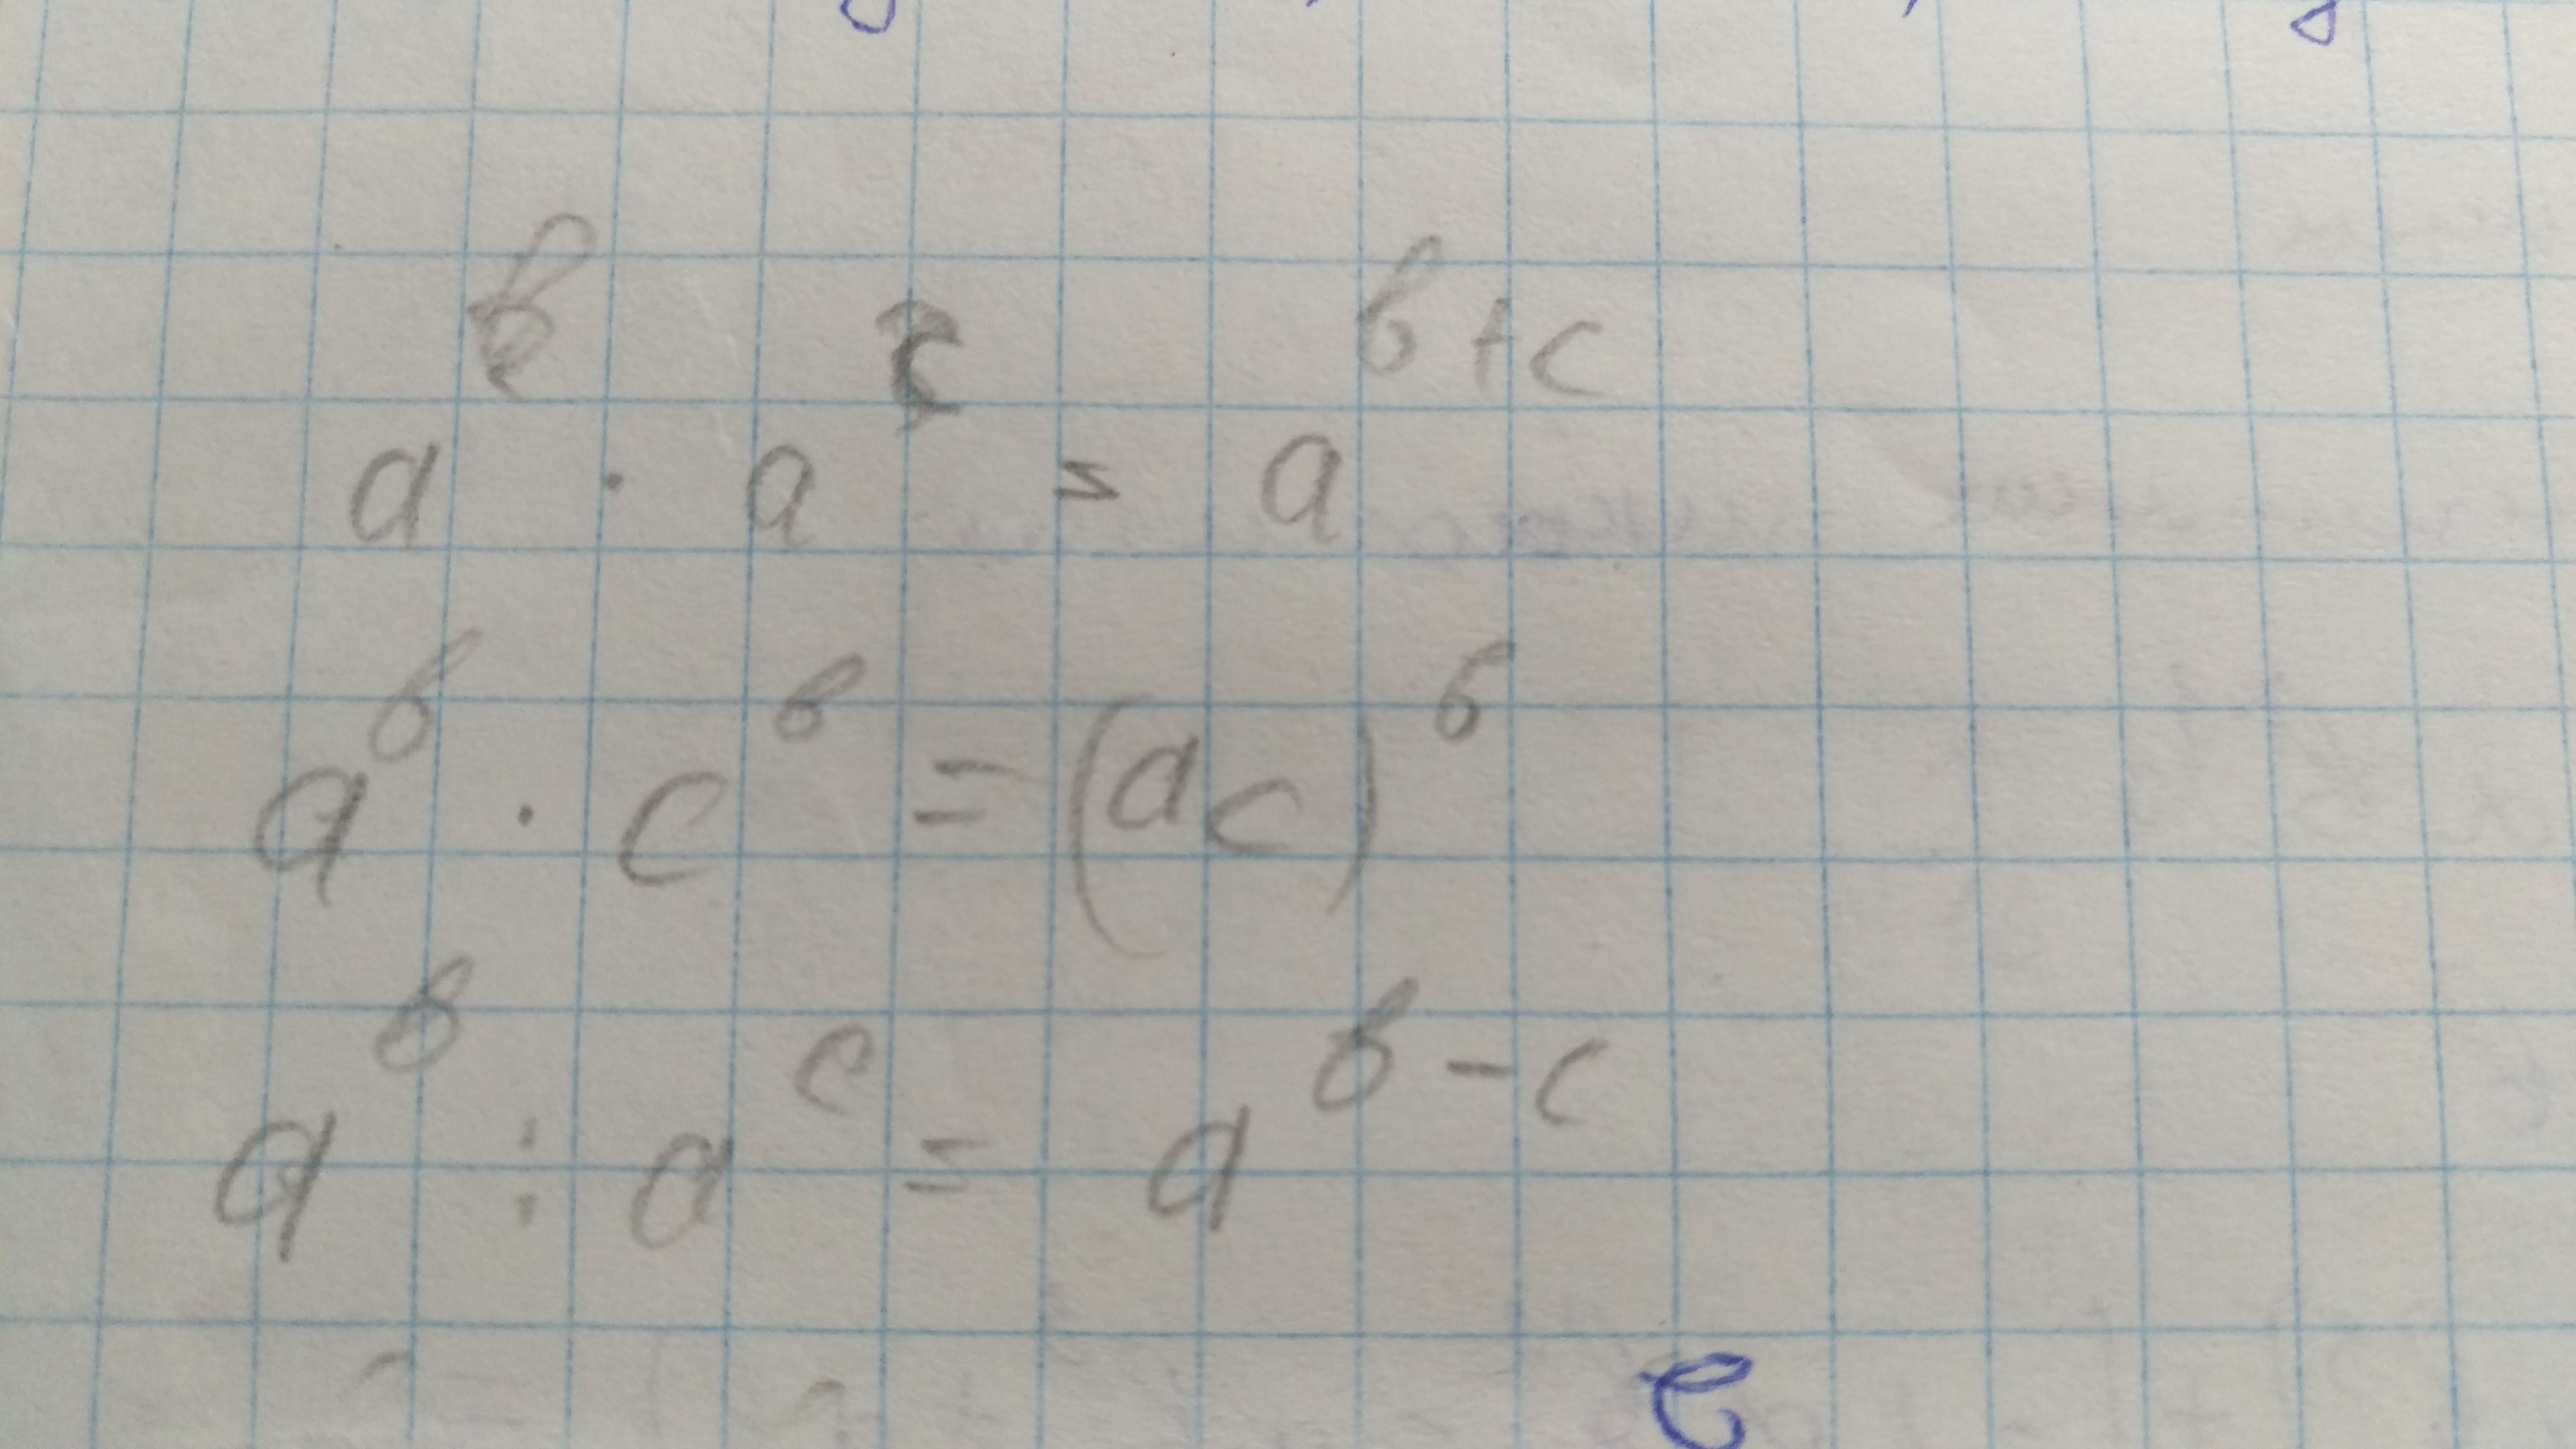 a^b · a^c = a^b+c
a^b · c^b = (ac)^b
a^b : a^c = a^b-c